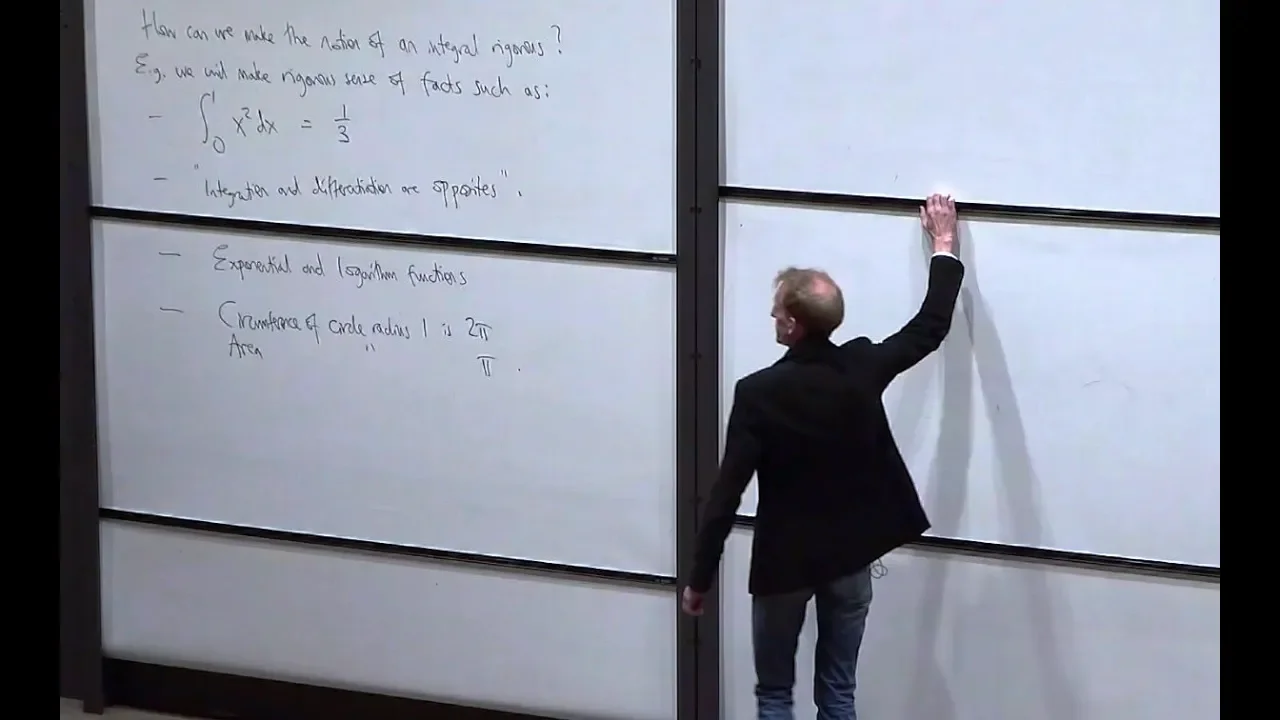 How can we make the notion of an integral rigorous?
E.g. we will make rigorous sense of facts such as:
- ∫₀¹ x² dx = 1/3
- "Integration and differentiation are opposites".
- Exponential and logarithm functions
- Circumference of circle radius 1 is 2π
Area " π.